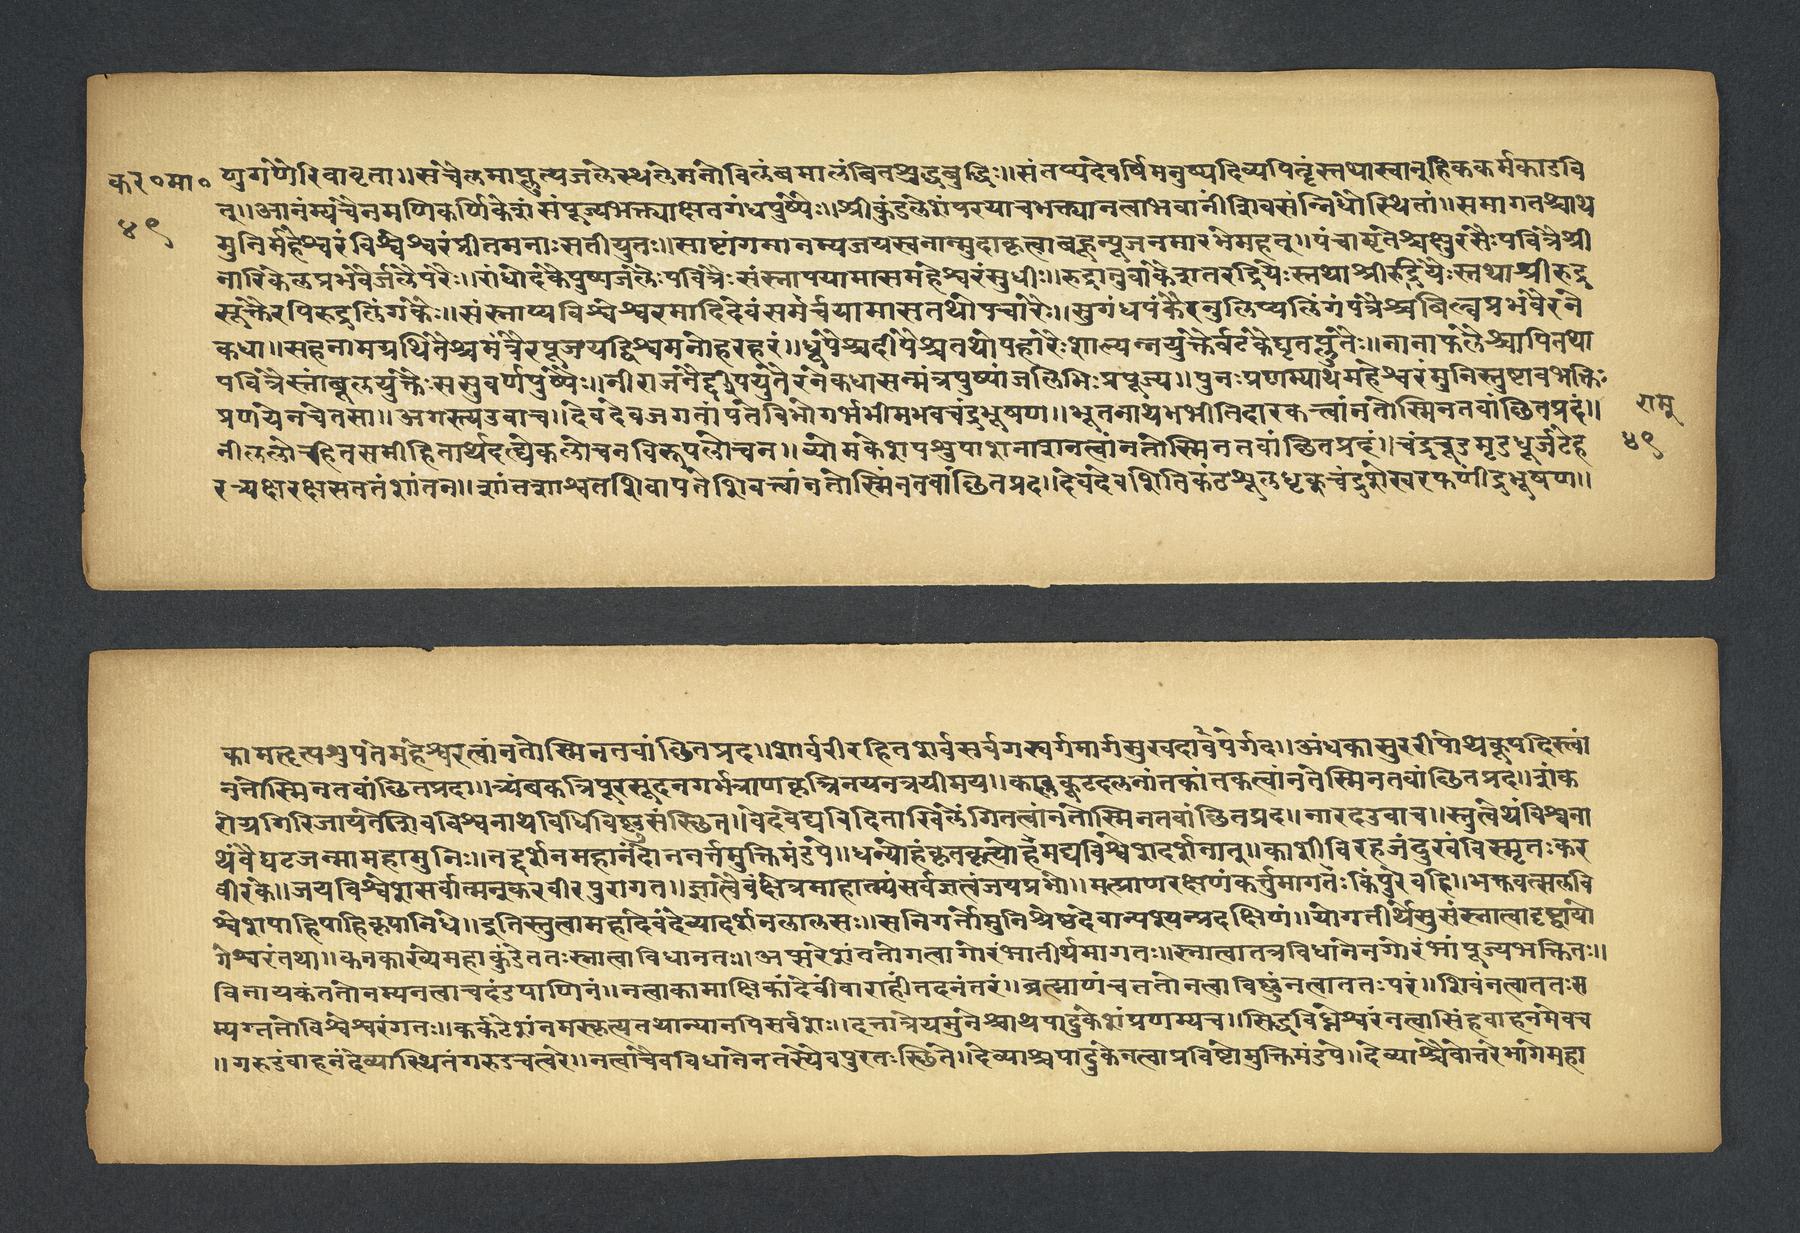 कर०मा०
४९
णुगणैरिवावृता॥सचैलमाप्लुत्यजलेस्थलेमनोविलंबमालंबितशुद्धबुद्धिः॥संतर्प्यदेवर्षिमनुष्यदिव्यपितॄंस्तथास्वानुहिककर्मकाडवि
त्॥आनंम्यचैनमणिकर्णिकेशंसंपूज्यभक्त्याक्षतगंधपुष्पैः॥श्रीकुंडलेशंपरयाचभक्त्यानत्वाभवानींशिवसंन्निधौस्थितां॥समागतश्चाथ
मुनिर्महेश्वरंविश्वेश्वरंप्रीतमनाःसतीयुतः॥साष्टांगमानम्यजयस्वनान्मुदाकृत्वाबहून्पूजनमारभेमहत्॥पंचामृतैश्चक्षुरसैःपवित्रैश्री
नारिकेलप्रभवैर्जलैपरैः॥गंधोदकैपुष्पजलैःपवित्रैःसंस्नापयामासमहेश्वरंसुधीः॥रुद्रानुवाकैशतरुद्रियैःस्तथाश्रीरुद्रियैःस्तथाश्रीरुद्र
सूक्तैरपिरुद्रलिंगकैः॥संस्नाप्यविश्वेश्वरमादिदेवंसमर्चयामासतथोपचारैः॥सुगंधपंकैरनुलिप्यलिंगंपत्रैश्चबिल्वप्रभवैरने
कधा॥सहनामग्रथितैश्चमंत्रैरपूजयद्विश्वमनोहरहरं॥धूपैश्चदीपैश्चतथोपहारैःशाल्यन्नयुक्तैर्वटकैघृतप्लुतैः॥नानाफलैश्चापितथा
पवित्रैस्तांबूलयुक्तैःससुवर्णपुष्पैः॥नीराजनैद्दीपयुतैरनेकधासन्मंत्रपुष्पांजलिभिःप्रपूज्य॥पुनःप्रणम्याथमहेश्वरंमुनिस्तुष्टावभक्ति
प्रणयेनचेतसा॥अगस्त्यउवाच॥देवदेवजगतांपतेविभोगर्भभीमभवचंद्रभूषण॥भूतनाथभभीतिदारकत्त्वांनतोस्मिनतवांछितप्रदं॥
नीललोहितसमीहितार्थदत्येकलोचनविरूपलोचन॥व्योमकेशपशुपाशनाशनत्वांनतोस्मिनतवांछितप्रदं॥चंद्रचूडमृडधूर्जटेह
रत्र्यक्षरक्षसततंशांतन॥शांतशाश्वतशिवापतेशिवत्त्वांनतोस्मिंनतवांछितप्रद॥देवदेवशितिकंठशूलधृक्चंद्रशेखरफणींद्रभूषण॥
रामु
४९
कामहृत्पशुपतेमहेश्वरत्वांनतोस्मिनतवांछितप्रद॥शर्वरीरहितशर्वसर्वगस्वर्गमार्गसुखदापवर्गद॥अंधकासुररीपोथकूपदिस्त्वां
नतोस्मिनतवांछितप्रदा॥त्र्यंबकत्रिपूरसूदनगर्भत्राणकृन्त्रिनयनत्रयीमय॥कालकूटदलनांतकांतकत्वांनतेस्मिनतवांछितप्रद॥शंक
रोग्रगिरिजायतेशिवविश्वनाथविधिविष्णुसंस्थित॥वेदवेद्यविदिताखिलेंगितत्वांनतोस्मिनतवांछितप्रद॥नारदउवाच॥स्तुत्वैथंविश्वना
थंवैघटजन्मामहामुनिः॥नदृर्शनमहानंदाननर्त्तमुक्तिमंडपे॥धन्योहंकृतकृत्योहंमद्यविश्वेशदर्शनात्॥काशीविरहजंदुःखंविस्मृतःकर
वीरके॥जयविश्वेशसर्वात्मन्करवीरपुरागत॥ज्ञात्वैवंक्षेत्रमाहात्म्यंसर्वज्ञत्वंजयप्रभो॥मत्प्राणरक्षणंकर्त्तुमागतःकिंपुरेबहि॥भक्तवत्सलवि
श्वेशपाहिपाहिकृपानिधे॥इतिस्तुत्वामहादेवंदेव्यादर्शनलालसः॥सनिर्गतोमुनिश्रेष्ठदेवान्पश्यन्प्रदक्षिणं॥योगतीर्थेसुसंस्नात्वादृष्ट्वायो
गेश्वरंतथा॥कनकाख्येमहाकुंडेततःस्नात्वाविधानतः॥अप्सरेशंततोगत्वागोरंभातीर्थमागतः॥स्नात्वातत्रविधानेनगोरंभांपूज्यभक्तितः॥
विनायकंततोनम्यनत्वाचदंडपाणिनं॥नत्वाकामाक्षिकांदेवींवाराहींतदनंतरं॥ब्रह्माणंचततोनत्वाविष्णुंनत्वाततःपरं॥शिवंनत्वाततःस
म्यग्ततोविश्वेश्वरंगतः॥कर्कटेशंनमस्कृत्यतथान्यानपिसर्वशः॥दत्तात्रेयमुनेश्चाथपादुकेशंप्रणम्यच॥सिद्धविघ्नेश्वरंनत्वासिंहवाहनमेवच
॥गरुडंवाहनंदेव्यास्थितंगरुडचत्वरे॥नत्वाचैवविधानेनतस्यैवपुरतःस्थिते॥देव्याश्चपादुकेनत्वाप्रविष्टोमुक्तिमंडपे॥देव्याश्चैवोत्तरेभागेमहा